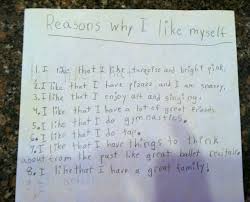 Reasons why I like myself
1. I like that I like turqoise and bright pink.
2. I like that I have pizzaz and I am snazzy.
3. I like that I enjoy art and singing.
4. I like that I have a lot of great friends.
5. I like that I do gymnastics.
6. I like that I do tap.
7. I like that I have things to think
about from the past like great ballet recitals.
8. I like that I have a great family!